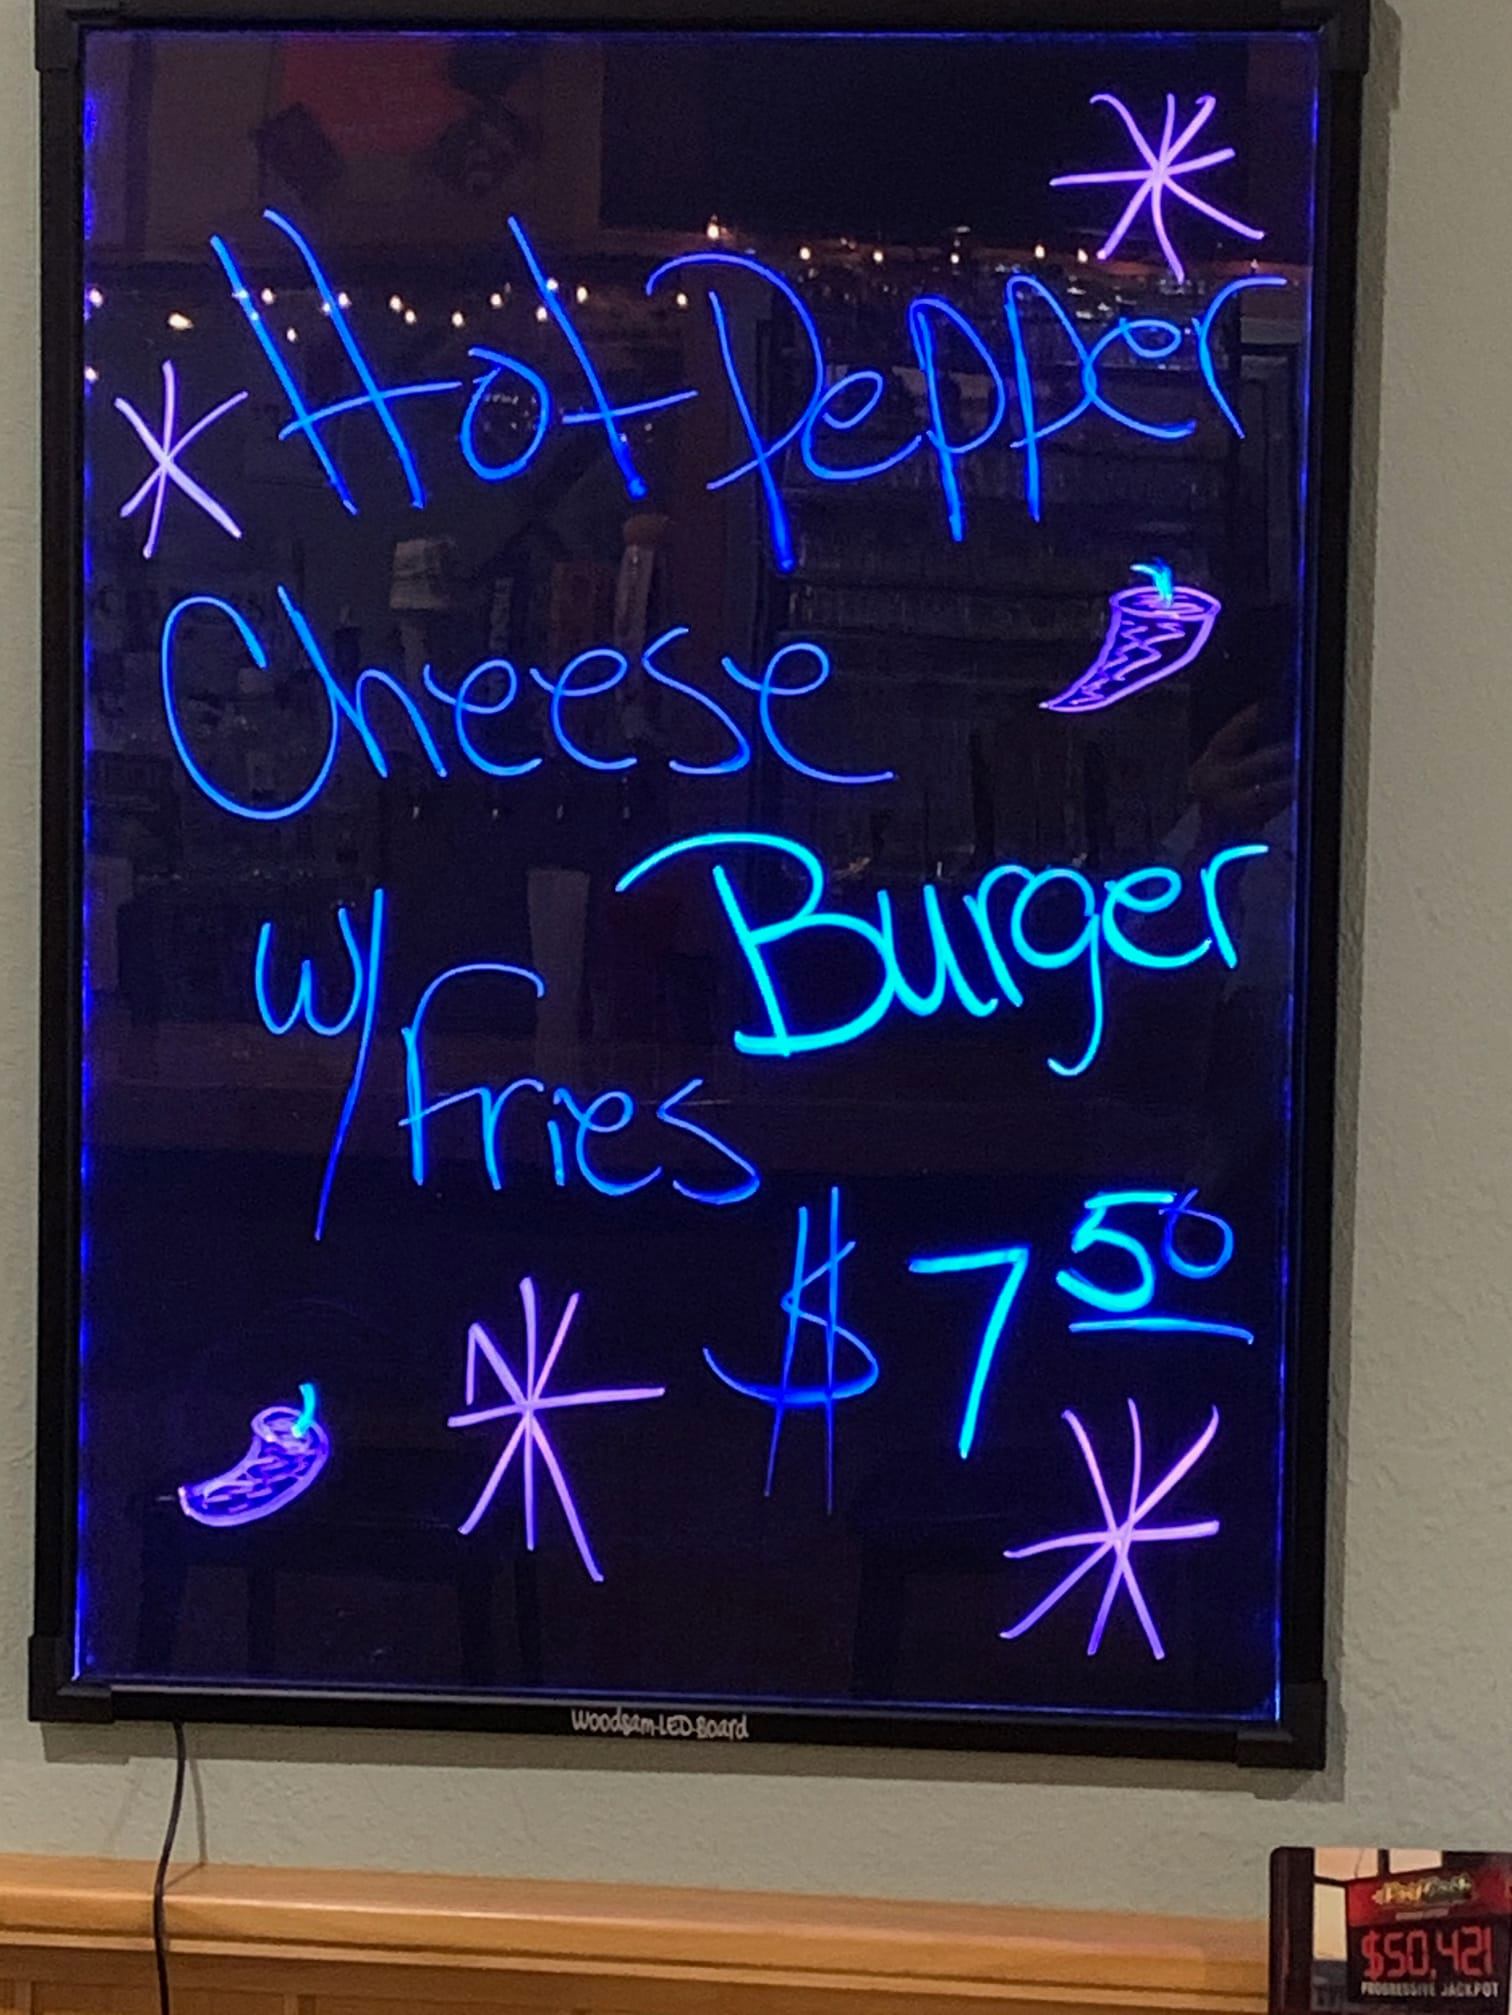 Hot Pepper
Cheese
Burger
w/ Fries
$7 50
Woodsam-LED-Board
$50,421
PROGRESSIVE JACKPOT